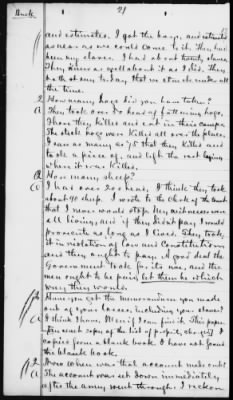 Buck
21
and estimates. I got the hogs, and estimate
as near as we could come to it. They had
been my slaves. I had about twenty slaves.
They knew as well about it as I did. They
both of my today, that we struck under all
the time.
Q How many hogs did you have taken?
A They took over 50 head of fattening hogs,
those they killed and eat in their camps.
The stock hogs were killed all over the place,
I saw as many as 75 that they killed and
took a piece of, and left the rest laying
where it was killed.
Q How many sheep?
A I had over 200 head, I think they took
about 90 sheep. I wrote to the Clerk of the Court
that I never would stop. My witnesses were
all living, and if they didn't pay, I would
prosecute as long as I lived. They took
it in violation of law and Constitution
and they ought to pay. A good deal the
Government took for its use, and the
men ought to be paid let them be which
way they would.
Q Have you got the memorandum you made
out of your losses, including your slaves?
A I think I have. Here is I can find it. This paper
copied from a blank book. I have not found
the blank book.
Q Now when was that account made out?
A The account was set down immediately
after the army went through. I reckon